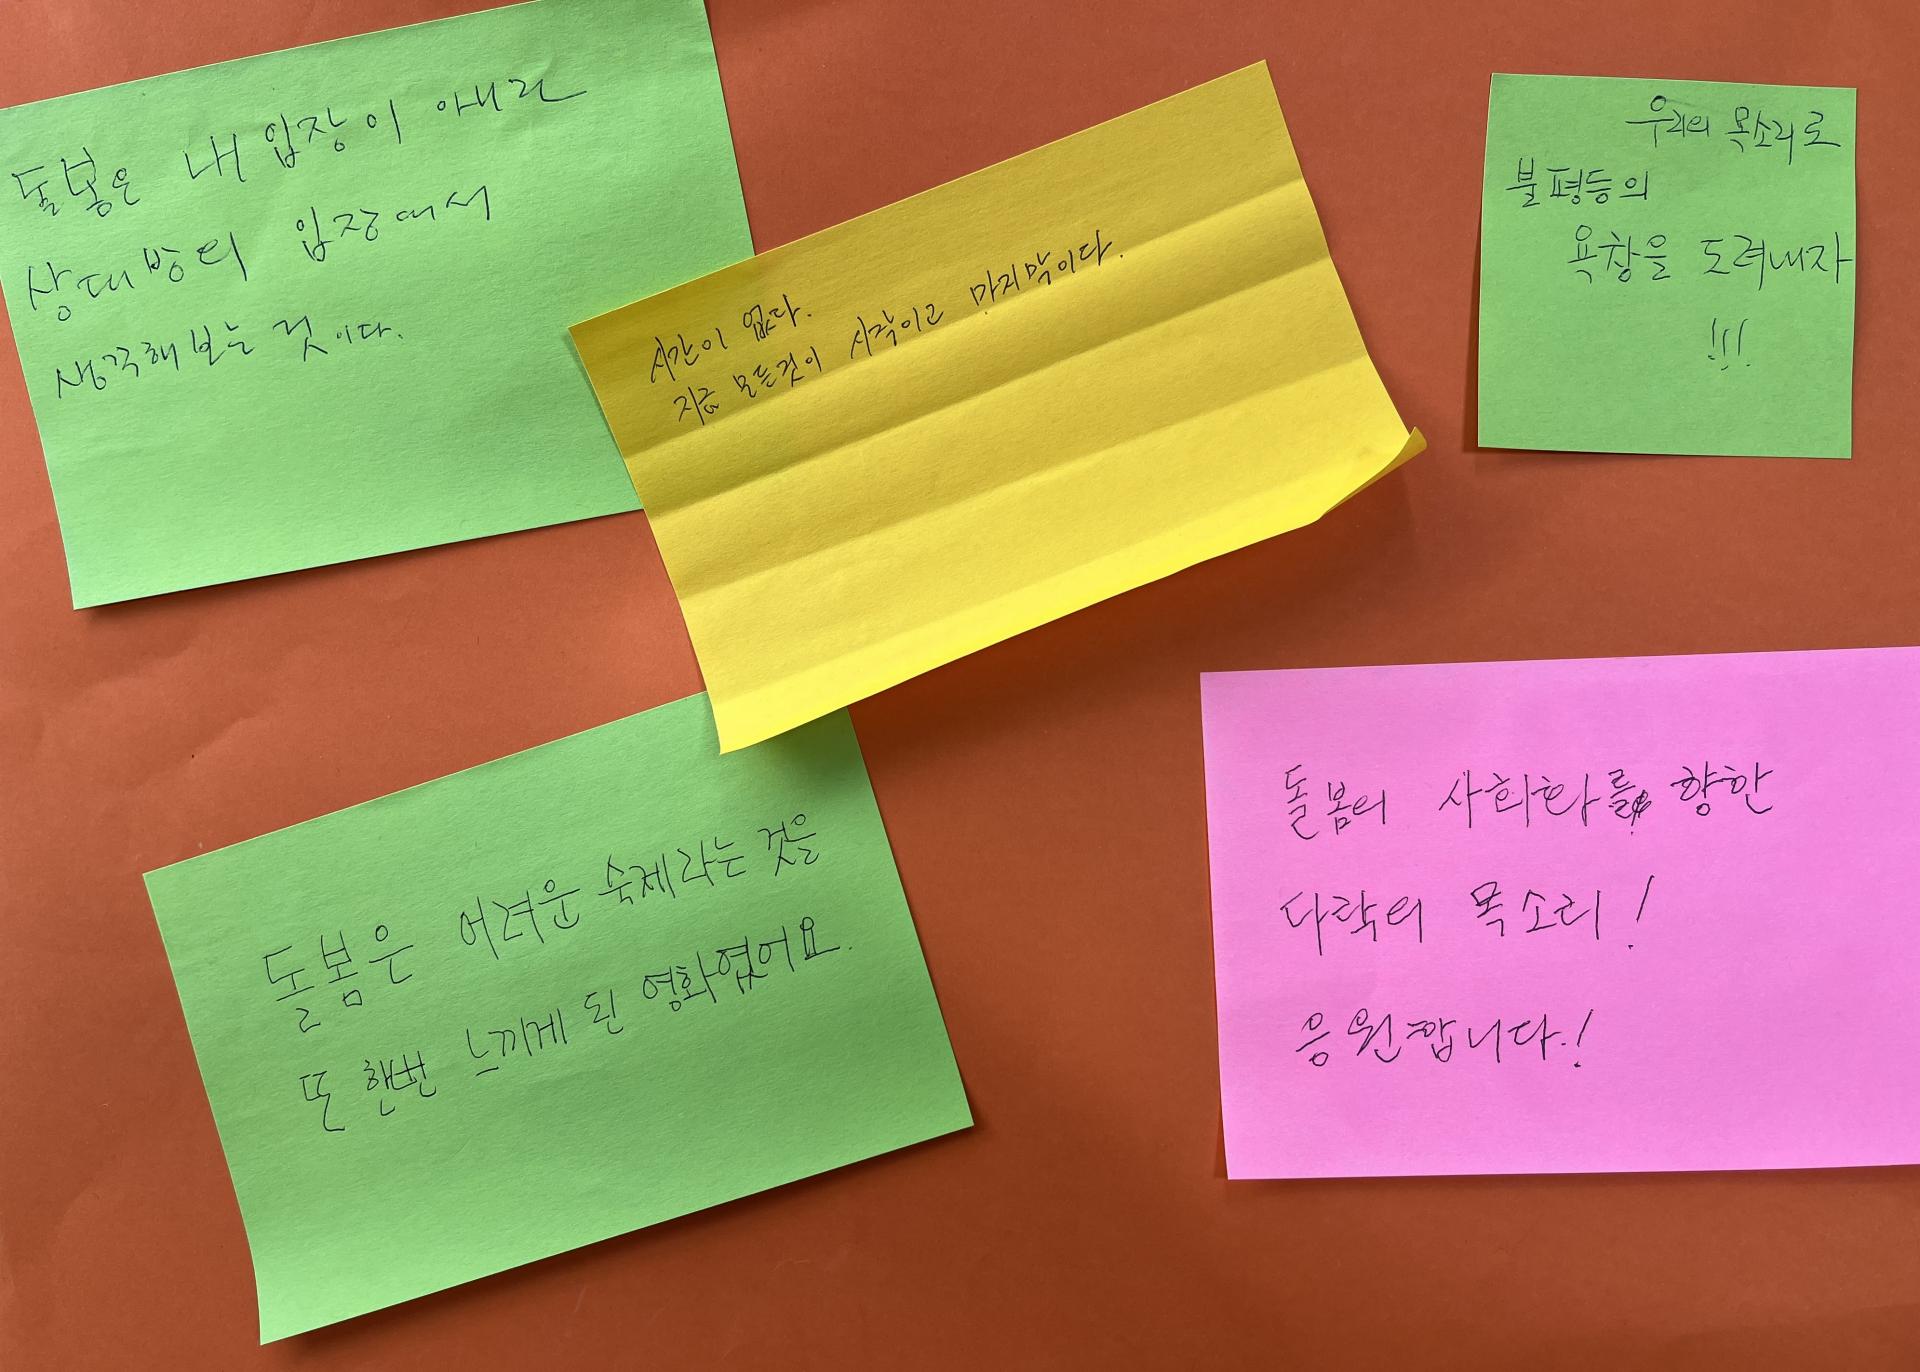 돌봄은 내 입장이 아니라
상대방의 입장에서
생각해 보는 것이다.
시간이 없다.
지금 모든것이 시작이고 마지막이다.
우리의 목소리로
불평등의
욕창을 도려내자
!!!
돌봄은 어려운 숙제라는 것을
또 한번 느끼게 된 영화였어요.
돌봄의 사회화를 향한
다락의 목소리!
응원합니다!